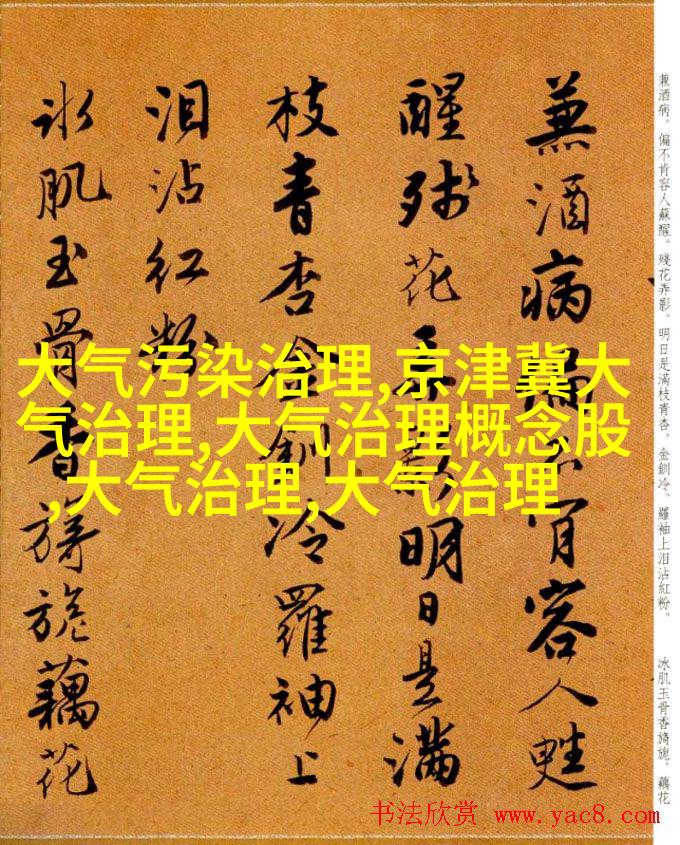 兼酒病。偏不肯容人蘇醒。殘花弄影。明日是滿枝青杏。金釧冷。羅袖上泪沾紅粉。
冰肌玉骨香旖旎。藕花
兼酒病偏不肯容人甦
醒殘花弄影明日是滿
枝青杏金釧冷羅袖上
泪沾紅粉
冰肌玉骨香旖旎藕花
大气污染治理,京津冀大
气治理,大气治理概念股
,大气治理,大气治理
书法欣赏 www.yac8.com